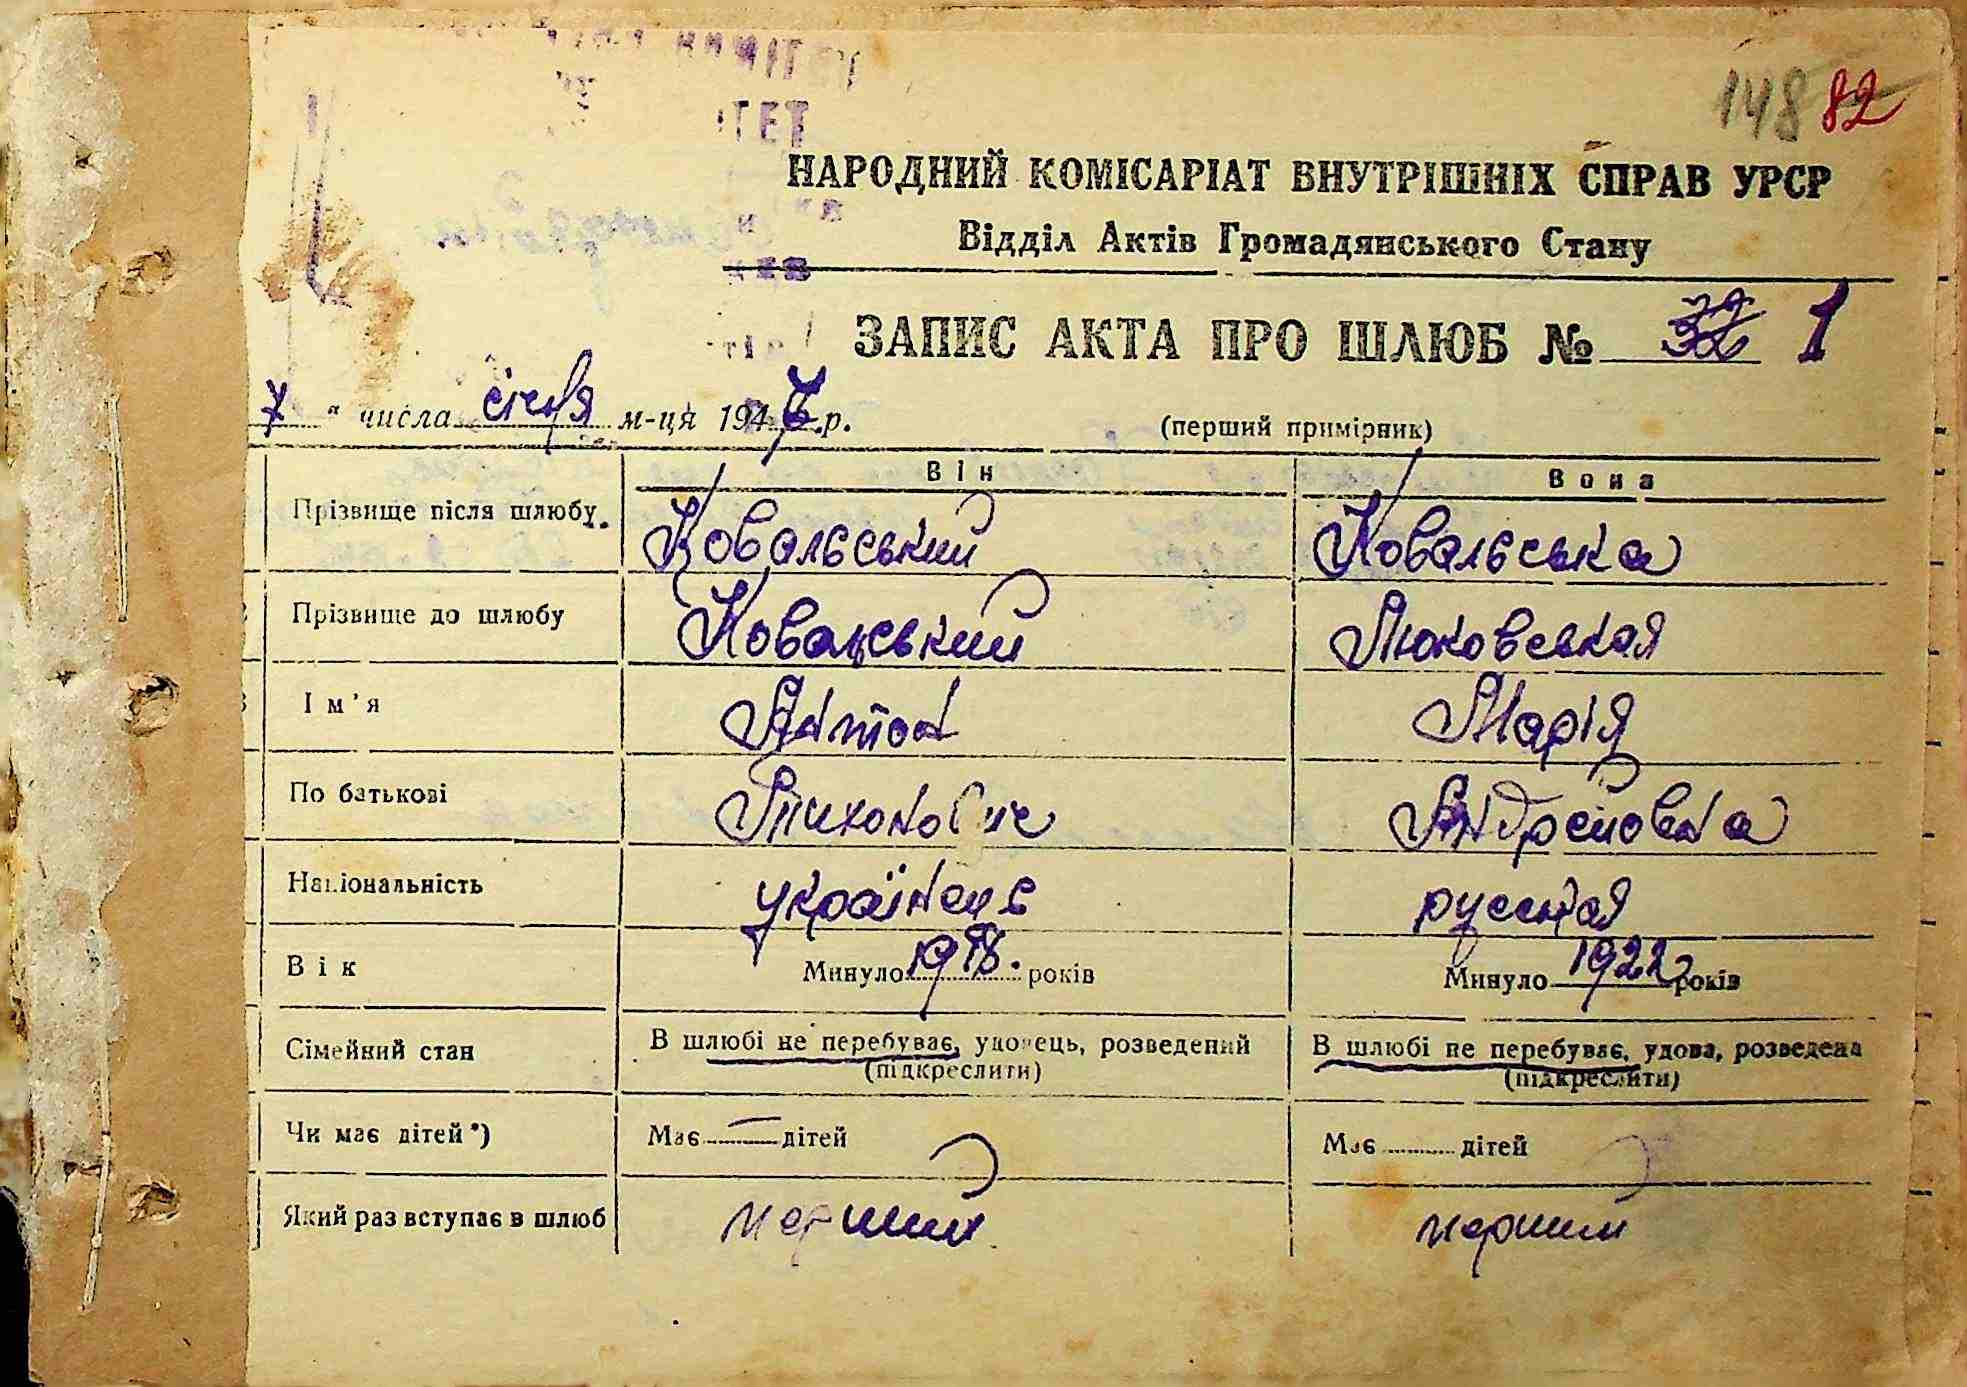 148 82
ТЕТ
НАРОДНИЙ КОМІСАРІАТ ВНУТРІШНІХ СПРАВ УРСР
Відділ Актів Громадянського Стану
ЗАПИС АКТА ПРО ШЛЮБ № 1
7 " числа січня м-ця 1947 р. (перший примірник)
Він Вона
Прізвище після шлюбу. Ковальський Ковальська
Прізвище до шлюбу Ковальський Люховськая
Ім'я Антон Марія
По батькові Тихонович Андрейовна
Національність українець русская
Вік Минуло 1918. років Минуло 1922 років
Сімейний стан В шлюбі не перебуває, удовець, розведений В шлюбі не перебуває, удова, розведена
(підкреслити) (підкреслити)
Чи має дітей*) Має — дітей Має дітей
Який раз вступає в шлюб перший перший